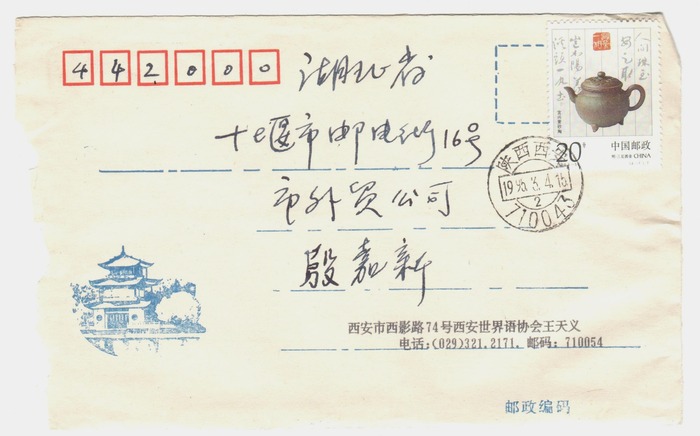 442000
湖北省
十堰市邮电街16号
市外贸公司
殷嘉新
西安市西影路74号西安世界语协会王天义
电话:(029)321.2171. 邮码: 710054
邮政编码
20分
中国邮政
CHINA
陕西西安
1995.3.4.16
2
710043